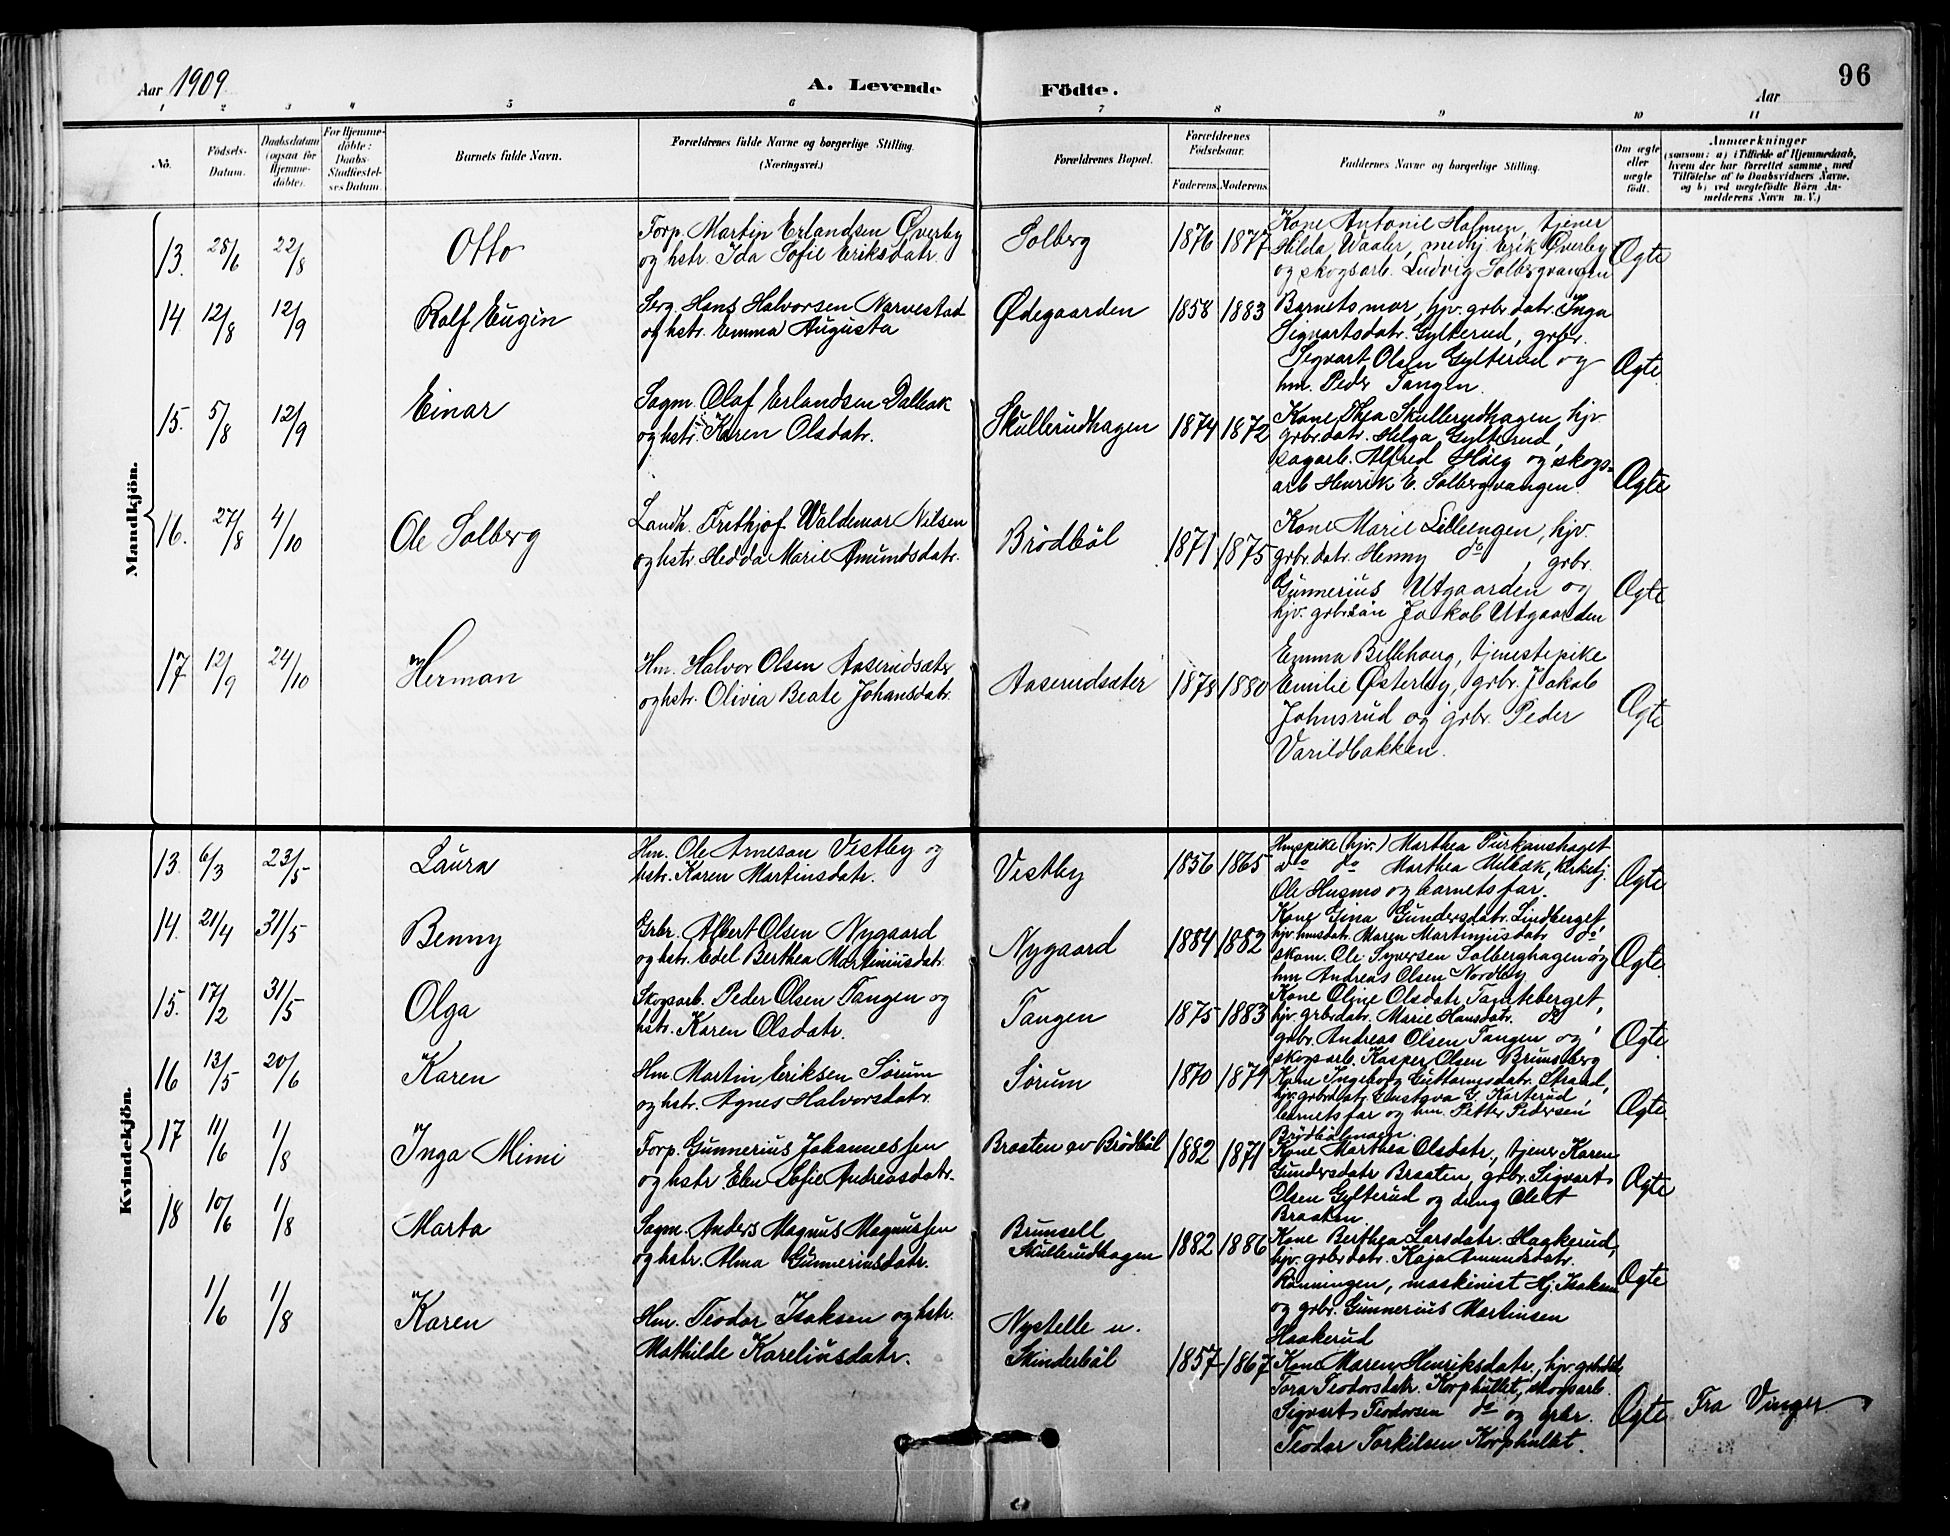 Aar 1909.
A. Levende Födte.
Aar
96
1 2 3 4 5 6 7 8 9 10 11
No.
Födsels-Datum.
Daabsdatum (ogsaa for Hjemme-döbte).
For Hjemme-döbte: Daabs-Stadfæstel-ses Datum.
Barnets fulde Navn.
Forældrenes fulde Navne og borgerlige Stilling. (Næringsvei.)
Forældrenes Bopæl.
Forældrenes Födselsaar.
Faderens. Moderens.
Faddernes Navne og borgerlige Stilling.
Om ægte eller uægte födt.
Anmærkninger
(saasom: a) i Tilfælde af Hjemmedaab, hvem der har forrettet samme, med Tilföielse af to Daabsvidners Navne. og b) ved uægtefödte Börn An-melderens Navn m. V.)
Mandkjön.
13. 25/6 22/8 Otto
Forp. Martin Erlandsen Øverby
og hstr. Ida Sofie Eriksdatr.
Solberg 1876 1877
Kone Antonie Holmen, tjener
Hilda Waaler, medhj. Erik Øverby
og skogsarb. Ludvig Solbergvangen
Ægte
14 12/8 12/9 Rolf Eugin
Serg. Hans Halvorsen Narvestad
og hstr. Emma Augusta
Ødegaarden 1858 1883
Barnets mor, hjv. grbr.datr. Inga
Sigvartsdatr. Gylterud, grbr.
Sigvart Olsen Gylterud og
hm. Peder Tangen.
Ægte
15. 5/8 12/9 Einar
Sagm. Olaf Erlandsen Dalbak
og hstr. Karen Olsdatr.
Skullerudhagen 1874 1872
Kone Thea Skullerudhagen, hjv.
grbr.datr. Helga Gylterud,
sagarb. Alfred Høeg og skogs-
arb Henrik E. Solbergvangen.
Ægte
16. 27/8 4/10 Ole Solberg
Landh. Frithjof Waldemar Nilsen
og hstr. Hedda Marie Ømundsdatr.
Brödböl 1871 1875
Kone Marie Lilleengen, hjv.
grbr.datr. Henny do, grbr.
Gunnerius Utgaarden og
hjv. grbr.sön Jakob Utgaarden
Ægte
17 12/9 24/10 Herman
Hm. Halvor Olsen Aaserudsæter
og hstr. Olivia Beate Johansdatr.
Aaserudsæter 1878 1880
Emma Billehaug, tjenestepike
Emilie Østerby, grbr. Jakob
Johnsrud og grbr. Peder
Varildbakken.
Ægte
Kvindekjön.
13. 6/3 23/5 Laura
Hm. Ole Arnesan Vestby og
hstr. Karen Martinsdatr.
Vestby 1856 1865
Hmspike (hjv.) Marthea Purkenshaget
do do Marthea Milbak, kirketj.
Ole Husmo og barnets far.
Ægte
14. 21/4 31/5 Benny
Grbr. Albert Olsen Nygaard
og hstr. Edel Berthea Martiniusdatr.
Nygaard 1884 1882
Kone Gina Gundersdatr. Lindberget,
hjv. hmsdatr. Maren Martiniusdatr do,
skom. Ole Syversen Solberghagen og
hm Andreas Olsen Nordby
Ægte
15. 17/2 31/5 Olga
Skogsarb. Peder Olsen Tangen og
hstr. Karen Olsdatr.
Tangen 1875 1883
Kone Oline Olsdatr. Tomteberget,
hjv. grbr.datr. Marie Hansdatr. do,
grbr. Andreas Olsen Tangen og
skogsarb. Kasper Olsen Brunsberg
Ægte
16 13/5 20/6 Karen
Hm. Martin Eriksen Sörum
og hstr. Agnes Halvorsdatr.
Sörum 1870 1879
Kone Ingeborg Guttormsdatr. Strand,
hjv. grbr.datr. Gustava G. Korterud,
barnets far og hm. Petter Pedersen
Brödbölmoen.
Ægte
17 11/6 1/8 Inga Mimi
Forp. Gunnerius Johannessen
og hstr. Elen Sofie Andreasdatr.
Braaten av Brödböl 1882 1871
Kone Marthea Olsdatr., tjener Karen
Gundersdatr Braaten, grbr. Sigvart
Olsen Gylterud og dreng Olert
Braaten
Ægte
18 10/6 1/8 Marta
Sagm. Anders Magnus Magnussen
og hstr. Alma Gunneriusdatr.
Brunsell
Skullerudhagen 1882 1886
Kone Berthea Larsdatr. Haakerud,
hjv. grbr.datr. Kaja Amundsdatr.
Rönningen, maskinist Hj. Isaksen
og grbr. Gunnerius Martinsen
Haakerud
Ægte
1/6 1/8 Karen
Hm. Teodor Isaksen og hstr.
Mathilde Kareliusdatr.
Nystelle u.
Skinderböl 1857 1867
Kone Maren Henriksdatr., hjv. grbr.dtr.
Tora Teodorsdatr. Korphullet, skogsarb.
Sigvart Teodorsen do og grbr.
Teodor Torkilsen Korphullet.
Ægte
Fra Vinger